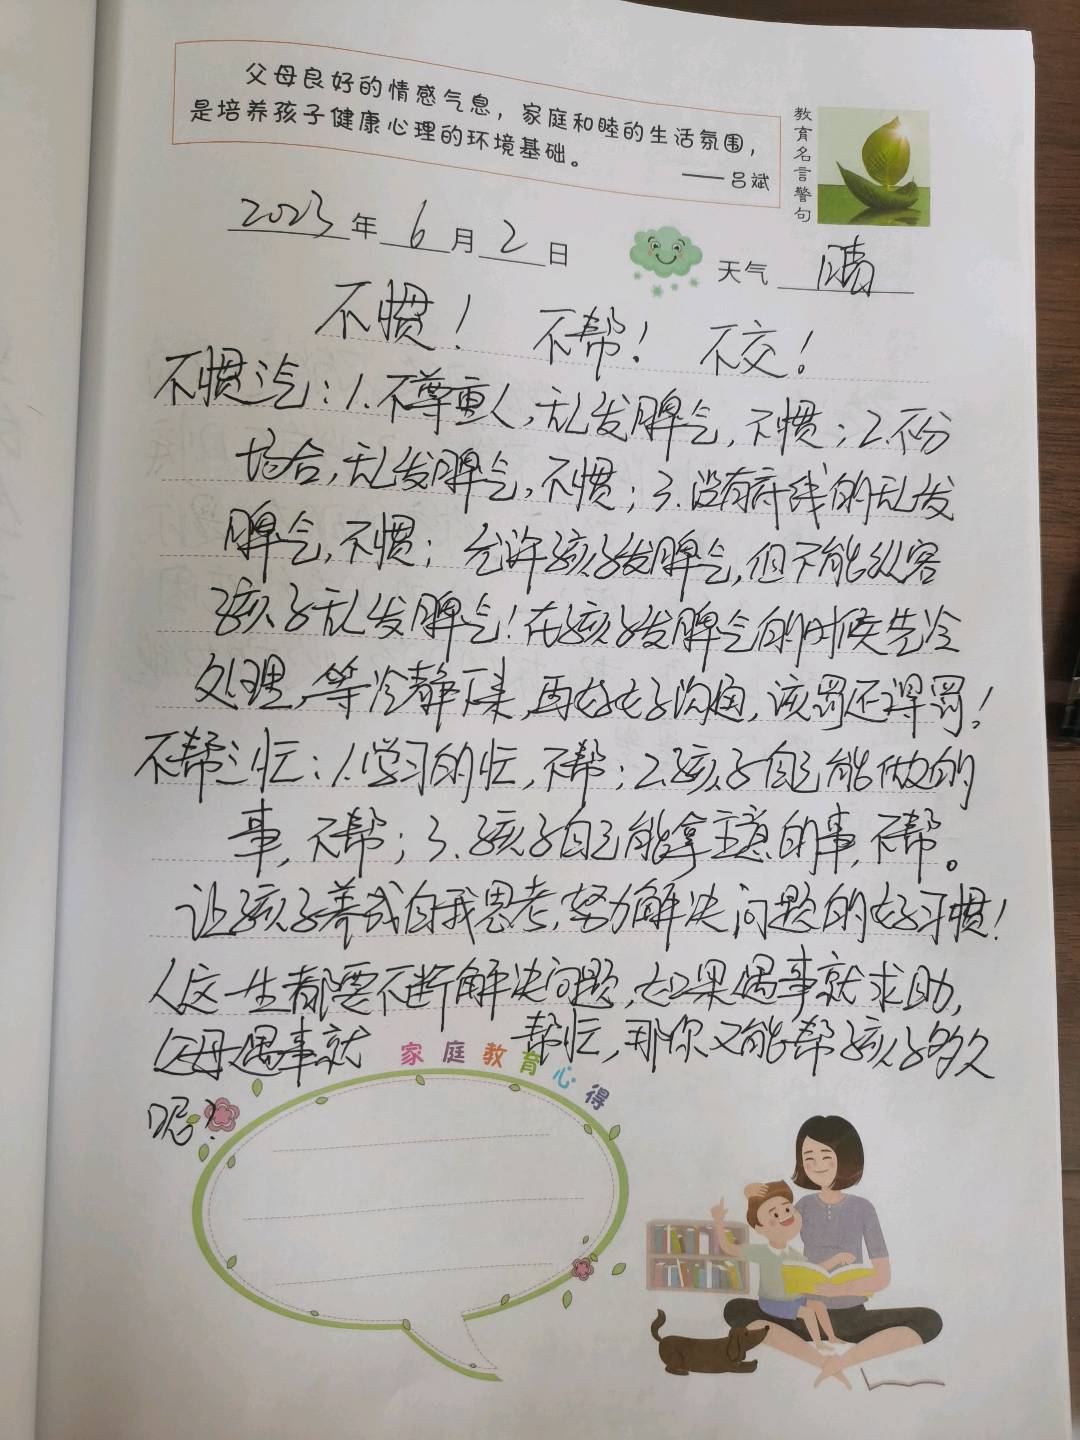 父母良好的情感气息，家庭和睦的生活氛围，
是培养孩子健康心理的环境基础。
——吕斌
教育名言警句
2023年6月2日
天气 晴
不惯！ 不帮！ 不交！
不惯三气：1.不尊重人，乱发脾气，不惯；2.不分
场合，乱发脾气，不惯；3.没有底线的乱发
脾气，不惯；允许孩子发脾气，但不能纵容
孩子乱发脾气！在孩子发脾气的时候先冷
处理，等冷静下来，再好好沟通，该罚还得罚！
不帮三忙：1.学习的忙，不帮；2.孩子自己能做的
事，不帮；3.孩子自己能拿主意的事，不帮。
让孩子养成自我思考，努力解决问题的好习惯！
人这一生都要不断解决问题，如果遇事就求助，
父母遇事就 帮忙，那你又能帮孩子多久
呢？
家庭教育心得